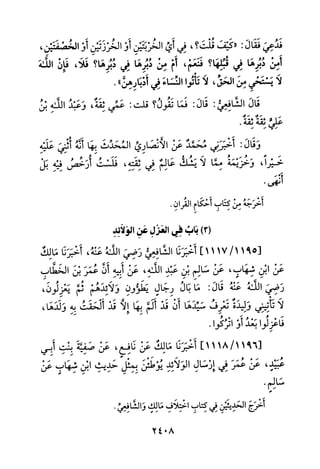 فَدُعِيَ فَقَالَ: «كَيْفَ قُلْتَ؟، فِي أَيِّ الخُرْبَتَيْنِ أَوْ الخُرْزَتَيْنِ أَوْ الخُصْفَتَيْنِ،
أَمِنْ دُبُرِهَا فِي قُبُلِهَا؟ فَنَعَمْ، أَمْ مِنْ دُبُرِهَا فِي دُبُرِهَا؟ فَلَا، فَإِنَّ اللَّهَ
لَا يَسْتَحْيِي مِنَ الحَقِّ، لَا تَأْتُوا النِّسَاءَ فِي أَدْبَارِهِنَّ».
قَالَ الشَّافِعِيُّ: قَالَ: فَمَا تَقُولُ؟ قلت: عَمِّي ثِقَةٌ، وَعَبْدُ اللَّهِ بْنُ
عَلِيٍّ ثِقَةٌ.
وَقَالَ: أَخْبَرَنِي مُحَمَّدٌ عَنْ الأَنْصَارِيِّ المُحَدِّثِ بِهَا أَنَّهُ أَثْنِيَ عَلَيْهِ
خَيْراً، وَخُزَيْمَةُ مِمَّا لَا يَشُكُّ عَالِمٌ فِي ثِقَتِهِ، فَلَسْتُ أُرَخِّصُ فِيْهِ بَلْ
أَنْهَى.
أَخْرَجَهُ مِنْ كِتَابِ أَحْكَامِ القُرانِ.
(٣) بَابٌ فِي العَزْلِ عَنِ الوَلَائِدِ
[١١١٧/١١٩٥] أَخْبَرَنَا الشَّافِعِيُّ رَضِيَ اللَّهُ عَنْهُ، أَخْبَرَنَا مَالِكٌ
عَنْ ابْنِ شِهَابٍ، عَنْ سَالِمِ بْنِ عَبْدِ اللَّهِ، عَنْ أَبِيهِ أَنَّ عُمَرَ بْنَ الخَطَّابِ
رَضِيَ اللَّهُ عَنْهُ قَالَ: مَا بَالُ رِجَالٍ يَطَؤُونَ وَلَائِدَهُمْ ثُمَّ يَعْزِلُونَ،
لَا تَأْتِينِي وَلِيدَةٌ تَعْرِفُ سَيِّدُهَا أَنْ قَدْ أَلَمَّ بِهَا إِلَّا قَدْ أَلْحَقْتُ بِهِ وَلَدَهَا،
فَاعْزِلُوا بَعْدُ أَوْ اتْرُكُوا.
[١١١٨/١١٩٦] أَخْبَرَنَا مَالِكٌ عَنْ نَافِعٍ، عَنْ صَفِيَّةَ بِنْتِ أَبِي
عُبَيْدٍ، عَنْ عُمَرَ فِي إِرْسَالِ الوَلَائِدِ يُوْطَئْنَ بِمِثْلِ حَدِيثِ ابْنِ شِهَابٍ عَنْ
سَالِمٍ.
أَخْرَجَ الحَدِيثَيْنِ فِي كِتابِ اخْتِلَافِ مَالِكٍ وَالشَّافِعِيِّ.
٢٤٠٨